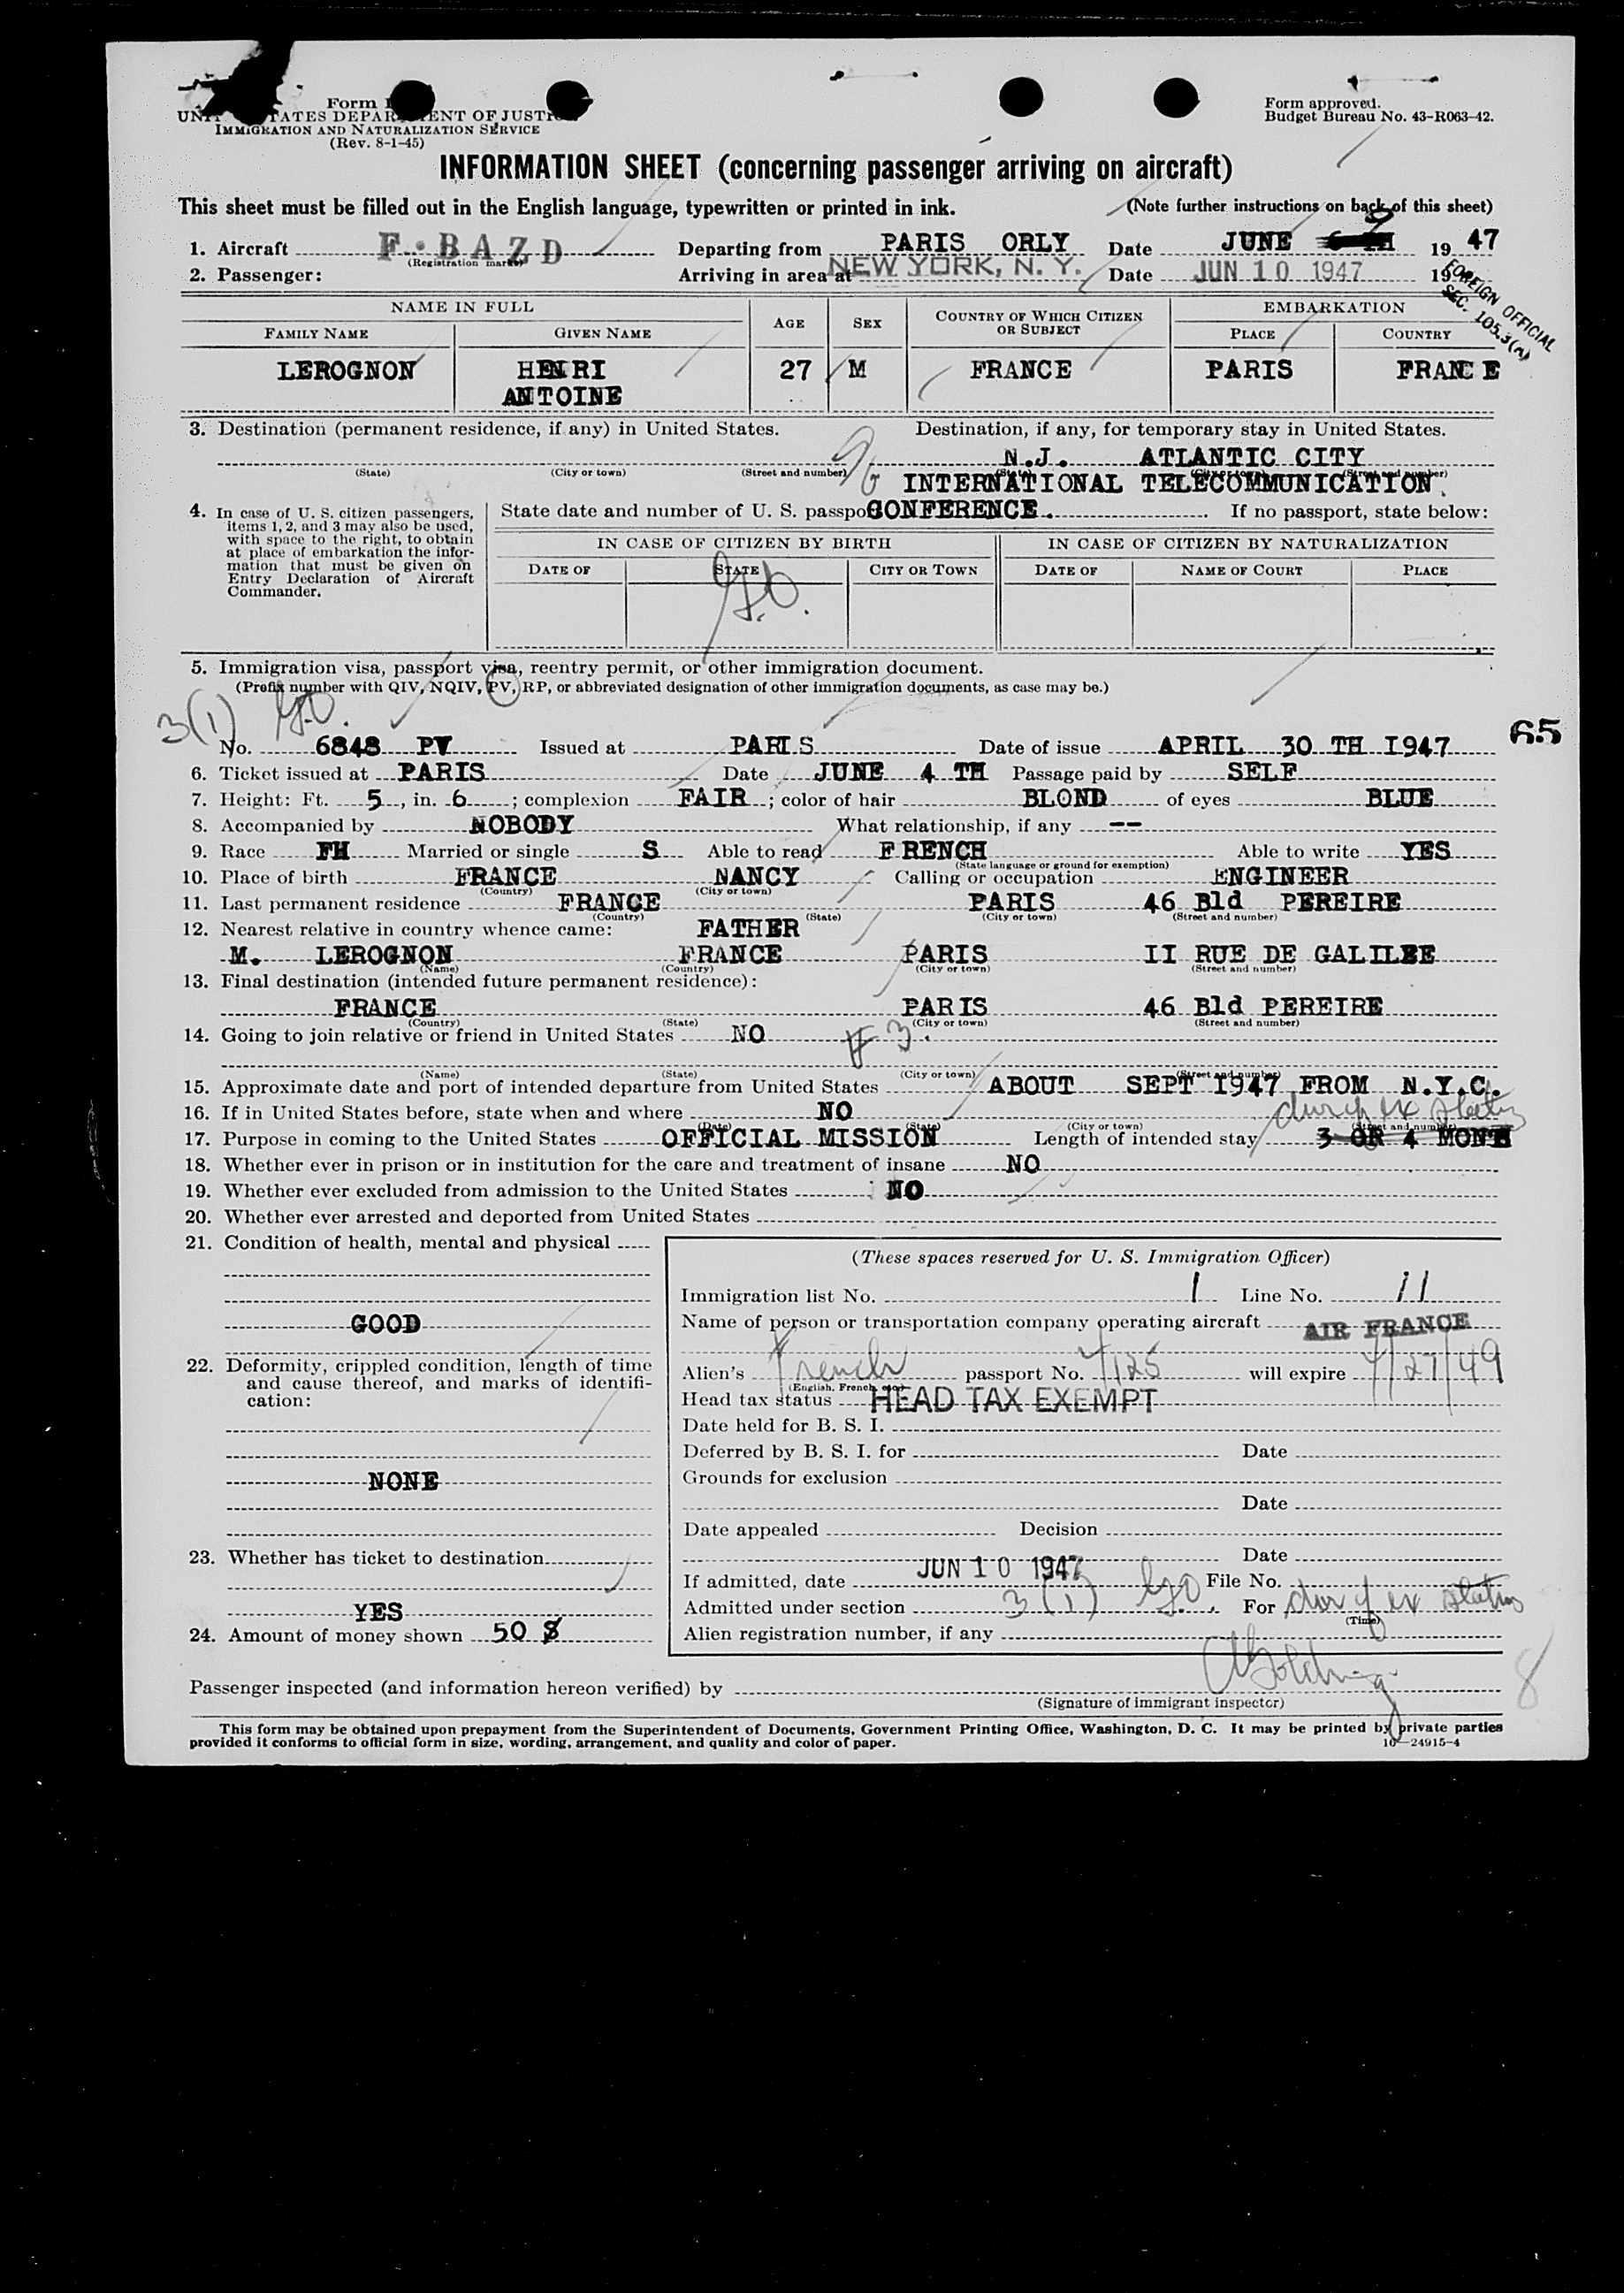 Form
UNITED STATES DEPARTMENT OF JUSTICE
IMMIGRATION AND NATURALIZATION SERVICE
(Rev. 8-1-45)
Form approved.
Budget Bureau No. 43-R063-42.
INFORMATION SHEET (concerning passenger arriving on aircraft)
This sheet must be filled out in the English language, typewritten or printed in ink. (Note further instructions on back of this sheet)
1. Aircraft F-BAZD Departing from PARIS ORLY Date JUNE 9 1947
(Registration marks)
2. Passenger: Arriving in area at NEW YORK, N. Y. Date JUN 10 1947 19
FOREIGN OFFICIAL
SEC. 105.3(a)
NAME IN FULL AGE SEX COUNTRY OF WHICH CITIZEN OR SUBJECT EMBARKATION
FAMILY NAME GIVEN NAME PLACE COUNTRY
LEROGNON HENRI 27 M FRANCE PARIS FRANCE
ANTOINE
3. Destination (permanent residence, if any) in United States. Destination, if any, for temporary stay in United States.
N.J. ATLANTIC CITY
(State) (City or town) (Street and number) (State) (City or town) (Street and number)
INTERNATIONAL TELECOMMUNICATION
4. In case of U. S. citizen passengers, items 1, 2, and 3 may also be used, with space to the right, to obtain at place of embarkation the information that must be given on Entry Declaration of Aircraft Commander.
State date and number of U. S. passpo CONFERENCE. If no passport, state below:
IN CASE OF CITIZEN BY BIRTH IN CASE OF CITIZEN BY NATURALIZATION
DATE OF STATE CITY OR TOWN DATE OF NAME OF COURT PLACE
5. Immigration visa, passport visa, reentry permit, or other immigration document.
(Prefix number with QIV, NQIV, PV, RP, or abbreviated designation of other immigration documents, as case may be.)
3(1)
No. 6848 PV Issued at PARIS Date of issue APRIL 30 TH I947 65
6. Ticket issued at PARIS Date JUNE 4 TH Passage paid by SELF
7. Height: Ft. 5, in. 6; complexion FAIR; color of hair BLOND of eyes BLUE
8. Accompanied by NOBODY What relationship, if any --
9. Race FH Married or single S Able to read FRENCH Able to write YES
(State language or ground for exemption)
10. Place of birth FRANCE NANCY Calling or occupation ENGINEER
(Country) (City or town)
11. Last permanent residence FRANCE PARIS 46 Bld PEREIRE
(Country) (State) (City or town) (Street and number)
12. Nearest relative in country whence came: FATHER
M. LEROGNON FRANCE PARIS II RUE DE GALILEE
(Name) (Country) (City or town) (Street and number)
13. Final destination (intended future permanent residence):
FRANCE PARIS 46 Bld PEREIRE
(Country) (State) (City or town) (Street and number)
14. Going to join relative or friend in United States NO
(Name) (State) (City or town) (Street and number)
15. Approximate date and port of intended departure from United States ABOUT SEPT I947 FROM N.Y.C.
16. If in United States before, state when and where NO
(Date) (State) (City or town) (Street and number)
17. Purpose in coming to the United States OFFICIAL MISSION Length of intended stay 3 OR 4 MONTH
18. Whether ever in prison or in institution for the care and treatment of insane NO
19. Whether ever excluded from admission to the United States NO
20. Whether ever arrested and deported from United States
21. Condition of health, mental and physical
GOOD
22. Deformity, crippled condition, length of time and cause thereof, and marks of identification:
NONE
23. Whether has ticket to destination
YES
24. Amount of money shown 50 $
(These spaces reserved for U. S. Immigration Officer)
Immigration list No. 1 Line No. 11
Name of person or transportation company operating aircraft AIR FRANCE
Alien's French passport No. 4/125 will expire 4/27/49
(English, French, etc.)
Head tax status HEAD TAX EXEMPT
Date held for B. S. I.
Deferred by B. S. I. for Date
Grounds for exclusion
Date
Date appealed Decision
Date
If admitted, date JUN 10 1947 File No.
Admitted under section 3(1) For
(Time)
Alien registration number, if any
8
Passenger inspected (and information hereon verified) by
(Signature of immigrant inspector)
This form may be obtained upon prepayment from the Superintendent of Documents, Government Printing Office, Washington, D. C. It may be printed by private parties
provided it conforms to official form in size, wording, arrangement, and quality and color of paper. 16—24915-4